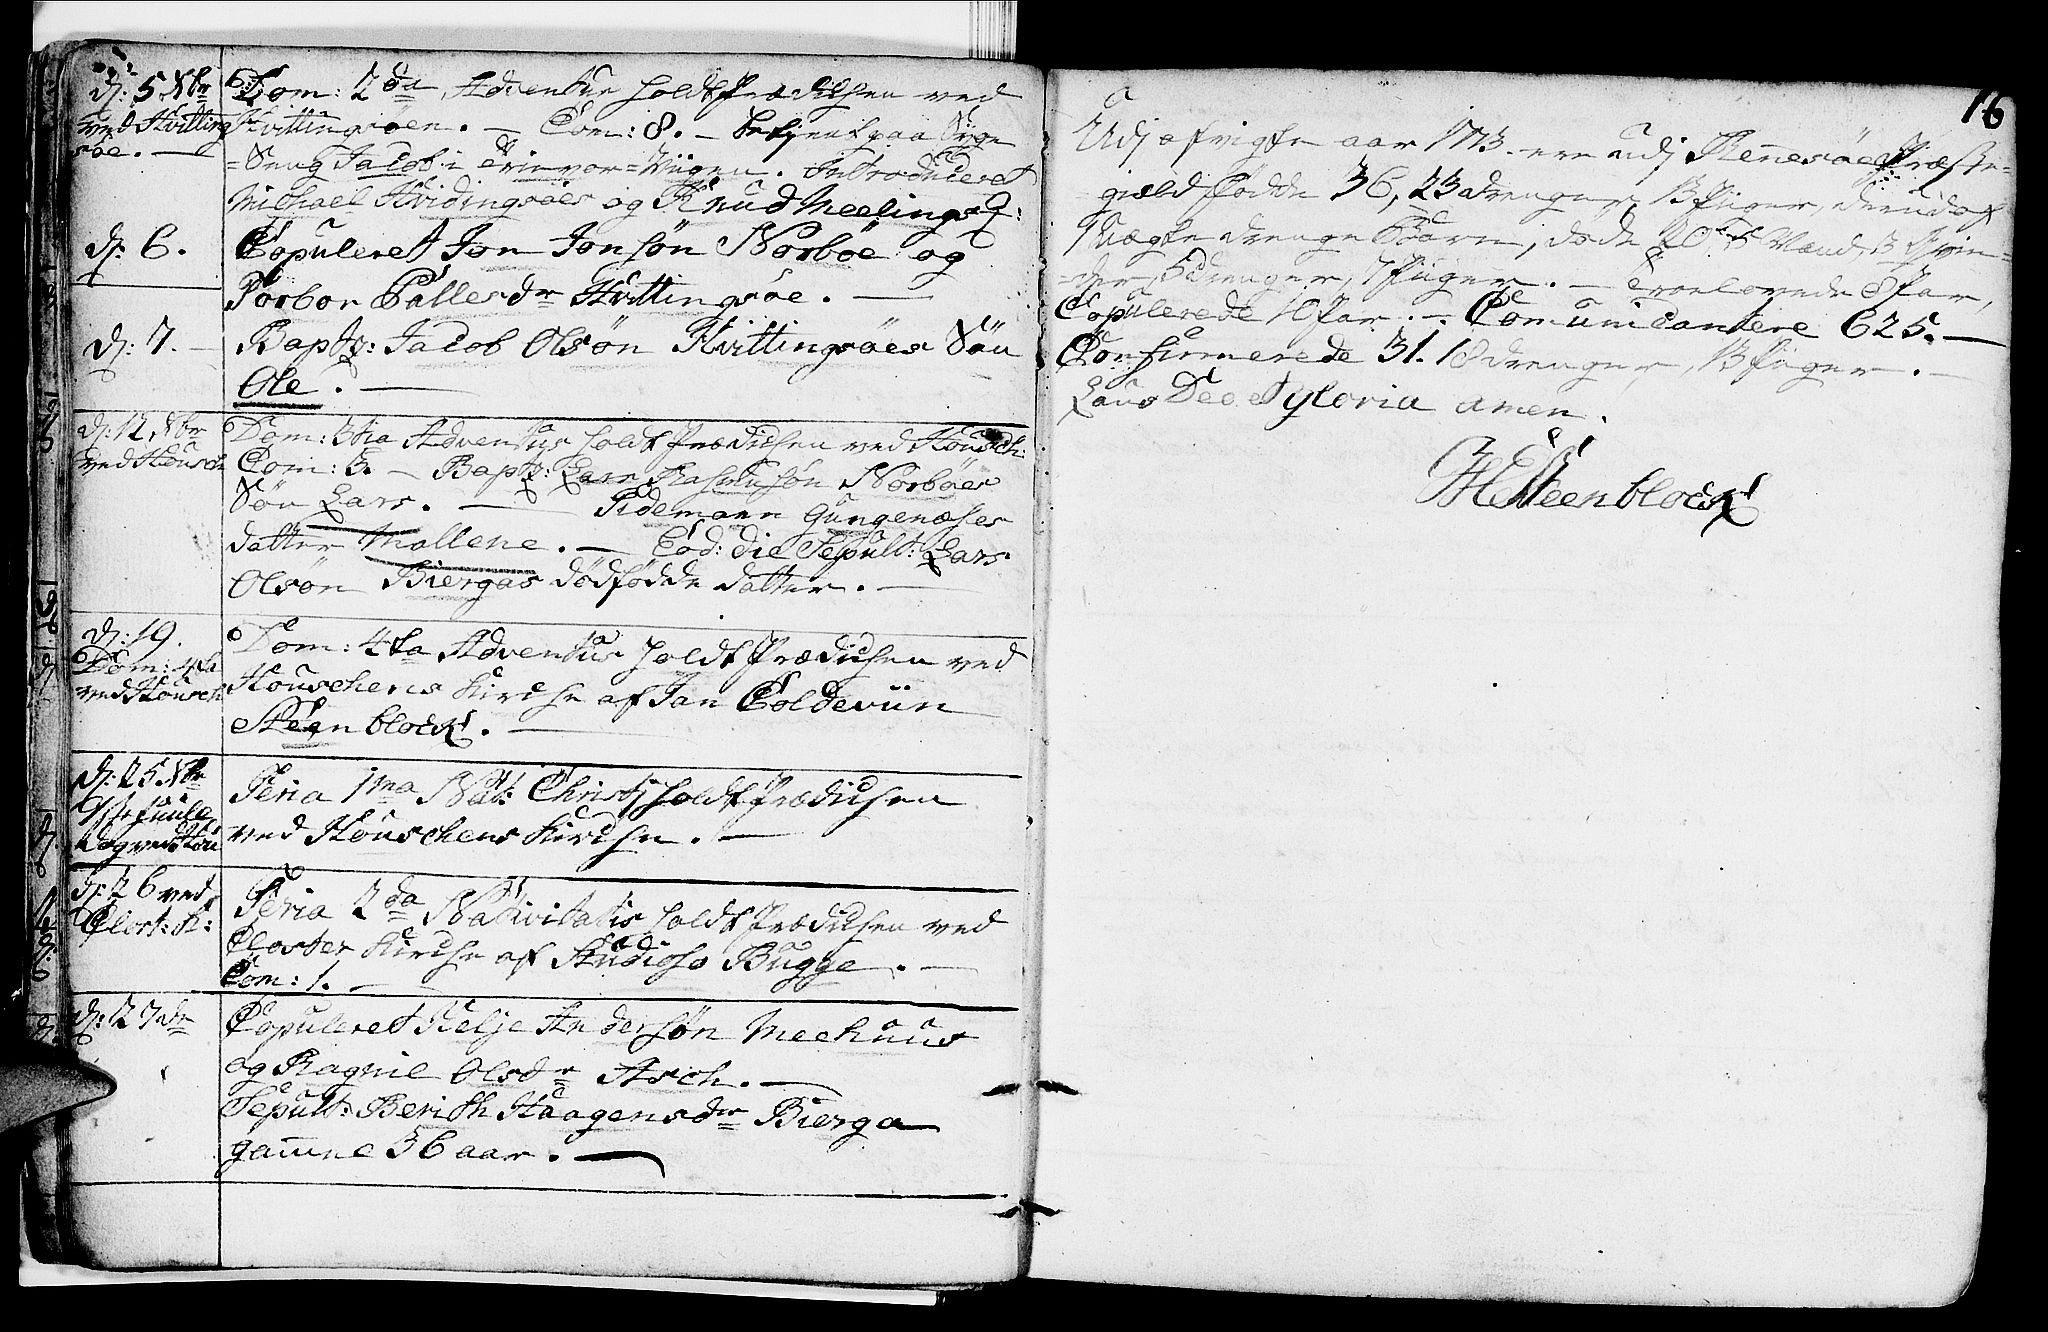 dj: 5 Xbr
ved Hvitting
søe. —
Dom: 2da Adventus holdt Prædichen ved
Hvittingsøen. — Com: 8. — betjent paa Syge
=Seng Jacob i =Viigen. Introduceret
Michael Hvidingsøes og Knud Meelings Q:
dj: 6.
Copuleret Jon Jonsøn Norbøe og
Torbor Pallesdr Hvittingsøe. —
dj: 7. —
Bapt: Jacob Olsøn Hvittingsøes Søn
Ole. —
dj: 12 Xbr
ved Housch
Dom: 3tia Adventus holdt Prædichen ved Housch:
Com: 5. — Bapt: Lars Rasmusøn Norbøes
Søn Lars. — Tidemann Gungenæses
datter Mallene. — Eod: die Sepult: Lars
Olsøn Biergas dødfødde datter. —
dj: 19.
Dom: 4ta
ved Housch
Dom: 4ta Adventus holdt Prædichen ved
Houschens Kirche af Jan Coldeviin
Steenblock. —
dj: 25 Xbr
1ste Juule
dag ved Hou
Feria 1ma Nat: Christj holdt Prædichen
ved Houschens Kirche. —
dj: 26 ved
Clost: K:
Feria 2da Nativitatis holdt Prædichen ved
Closter Kirche af Studioso Bugge. —
Com: 1. —
dj: 27de
Copuleret Kelje Andersøn Meehuus
og Ragnil Olsdr Asch. —
Sepult: Berith Haagensdr Bierga
gamme 36 aar. —
16
Udj afvigte aar 1773 ere udj Rennesøe Præste-
gield fødde 36, 23 drenger, 13 Piger, deraf
1 uægte drenge Barn, døde 20, 5 Mænd, 3 Qvin=
=der, 5 drenger, 7 Piger. — Troelovede 8 Par,
Copulerede 10 Par. — Comunicantere 625. —
Confirmerede 31. 18 drenger, 13 Piger. —
Laus Deo et gloria amen.
Steenblock